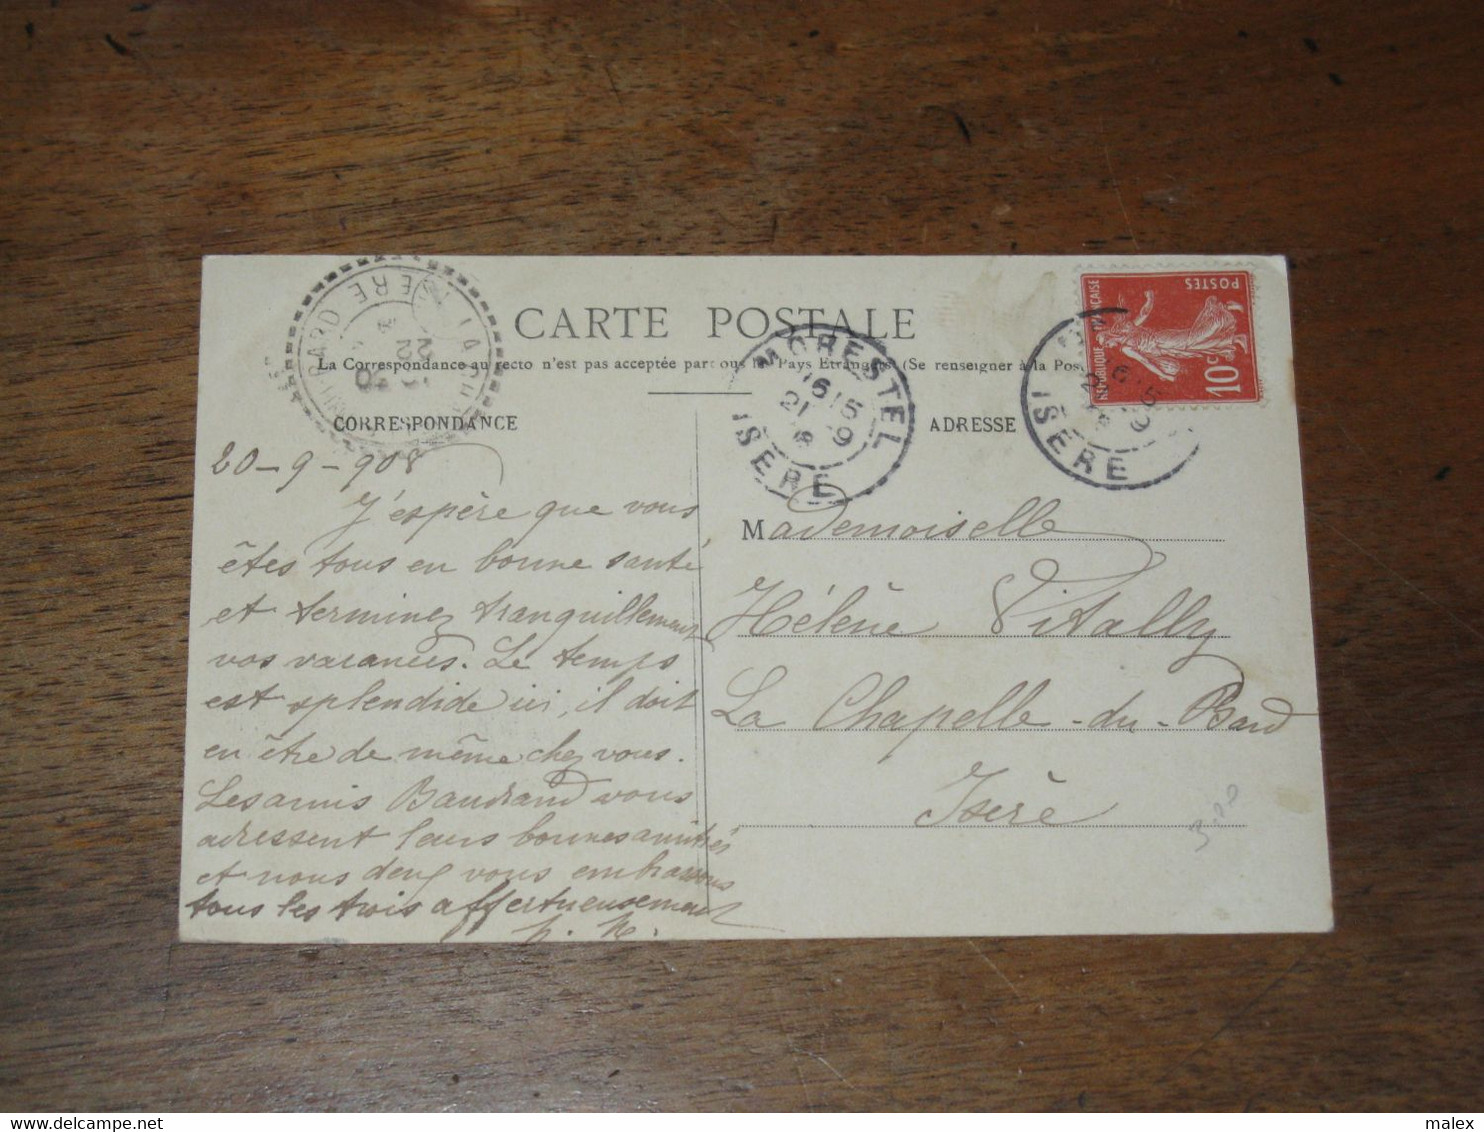 CARTE POSTALE
La Correspondance au recto n'est pas acceptée par tous les Pays Étrangers (Se renseigner à la Poste
CORRESPONDANCE
ADRESSE
20-9-908
J'espère que vous
êtes tous en bonne santé
et terminez tranquillement
vos vacances. Le temps
est splendide ici, il doit
en être de même chez vous.
Les amis Baudrand vous
adressent leurs bonnes amitiés
et nous deux vous embrassons
tous les trois affectueusement
Mademoiselle
Hélène Vitally
La Chapelle-du-Bard
Isère
3,00
MORESTEL
16 15
21 9
ISERE
ISERE
ISERE
REPUBLIQUE FRANÇAISE
POSTES
10c
malex